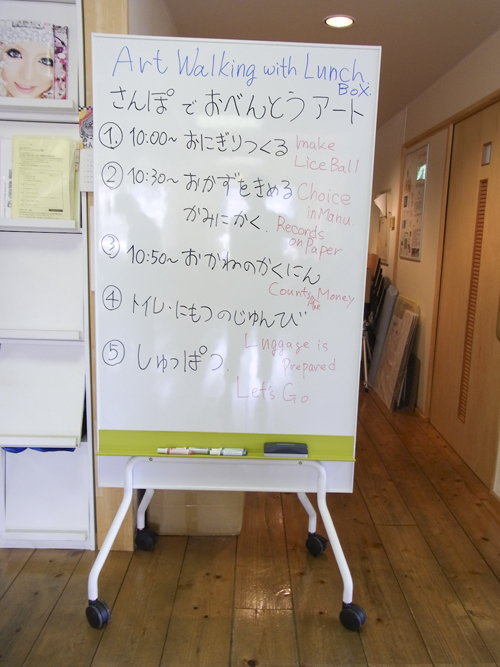 Art Walking with Lunch
BOX.
さんぽでおべんとうアート
① 10:00~ おにぎりつくる make
Lice Ball
② 10:30~ おかずをきめる Choice
in Manu
かみにかく. Records
on Paper
③ 10:50~ おかねのかくにん
County Money
the
④ トイレ・にもつのじゅんび
⑤ しゅっぱつ.
Luggage is
Prepared
Let's Go